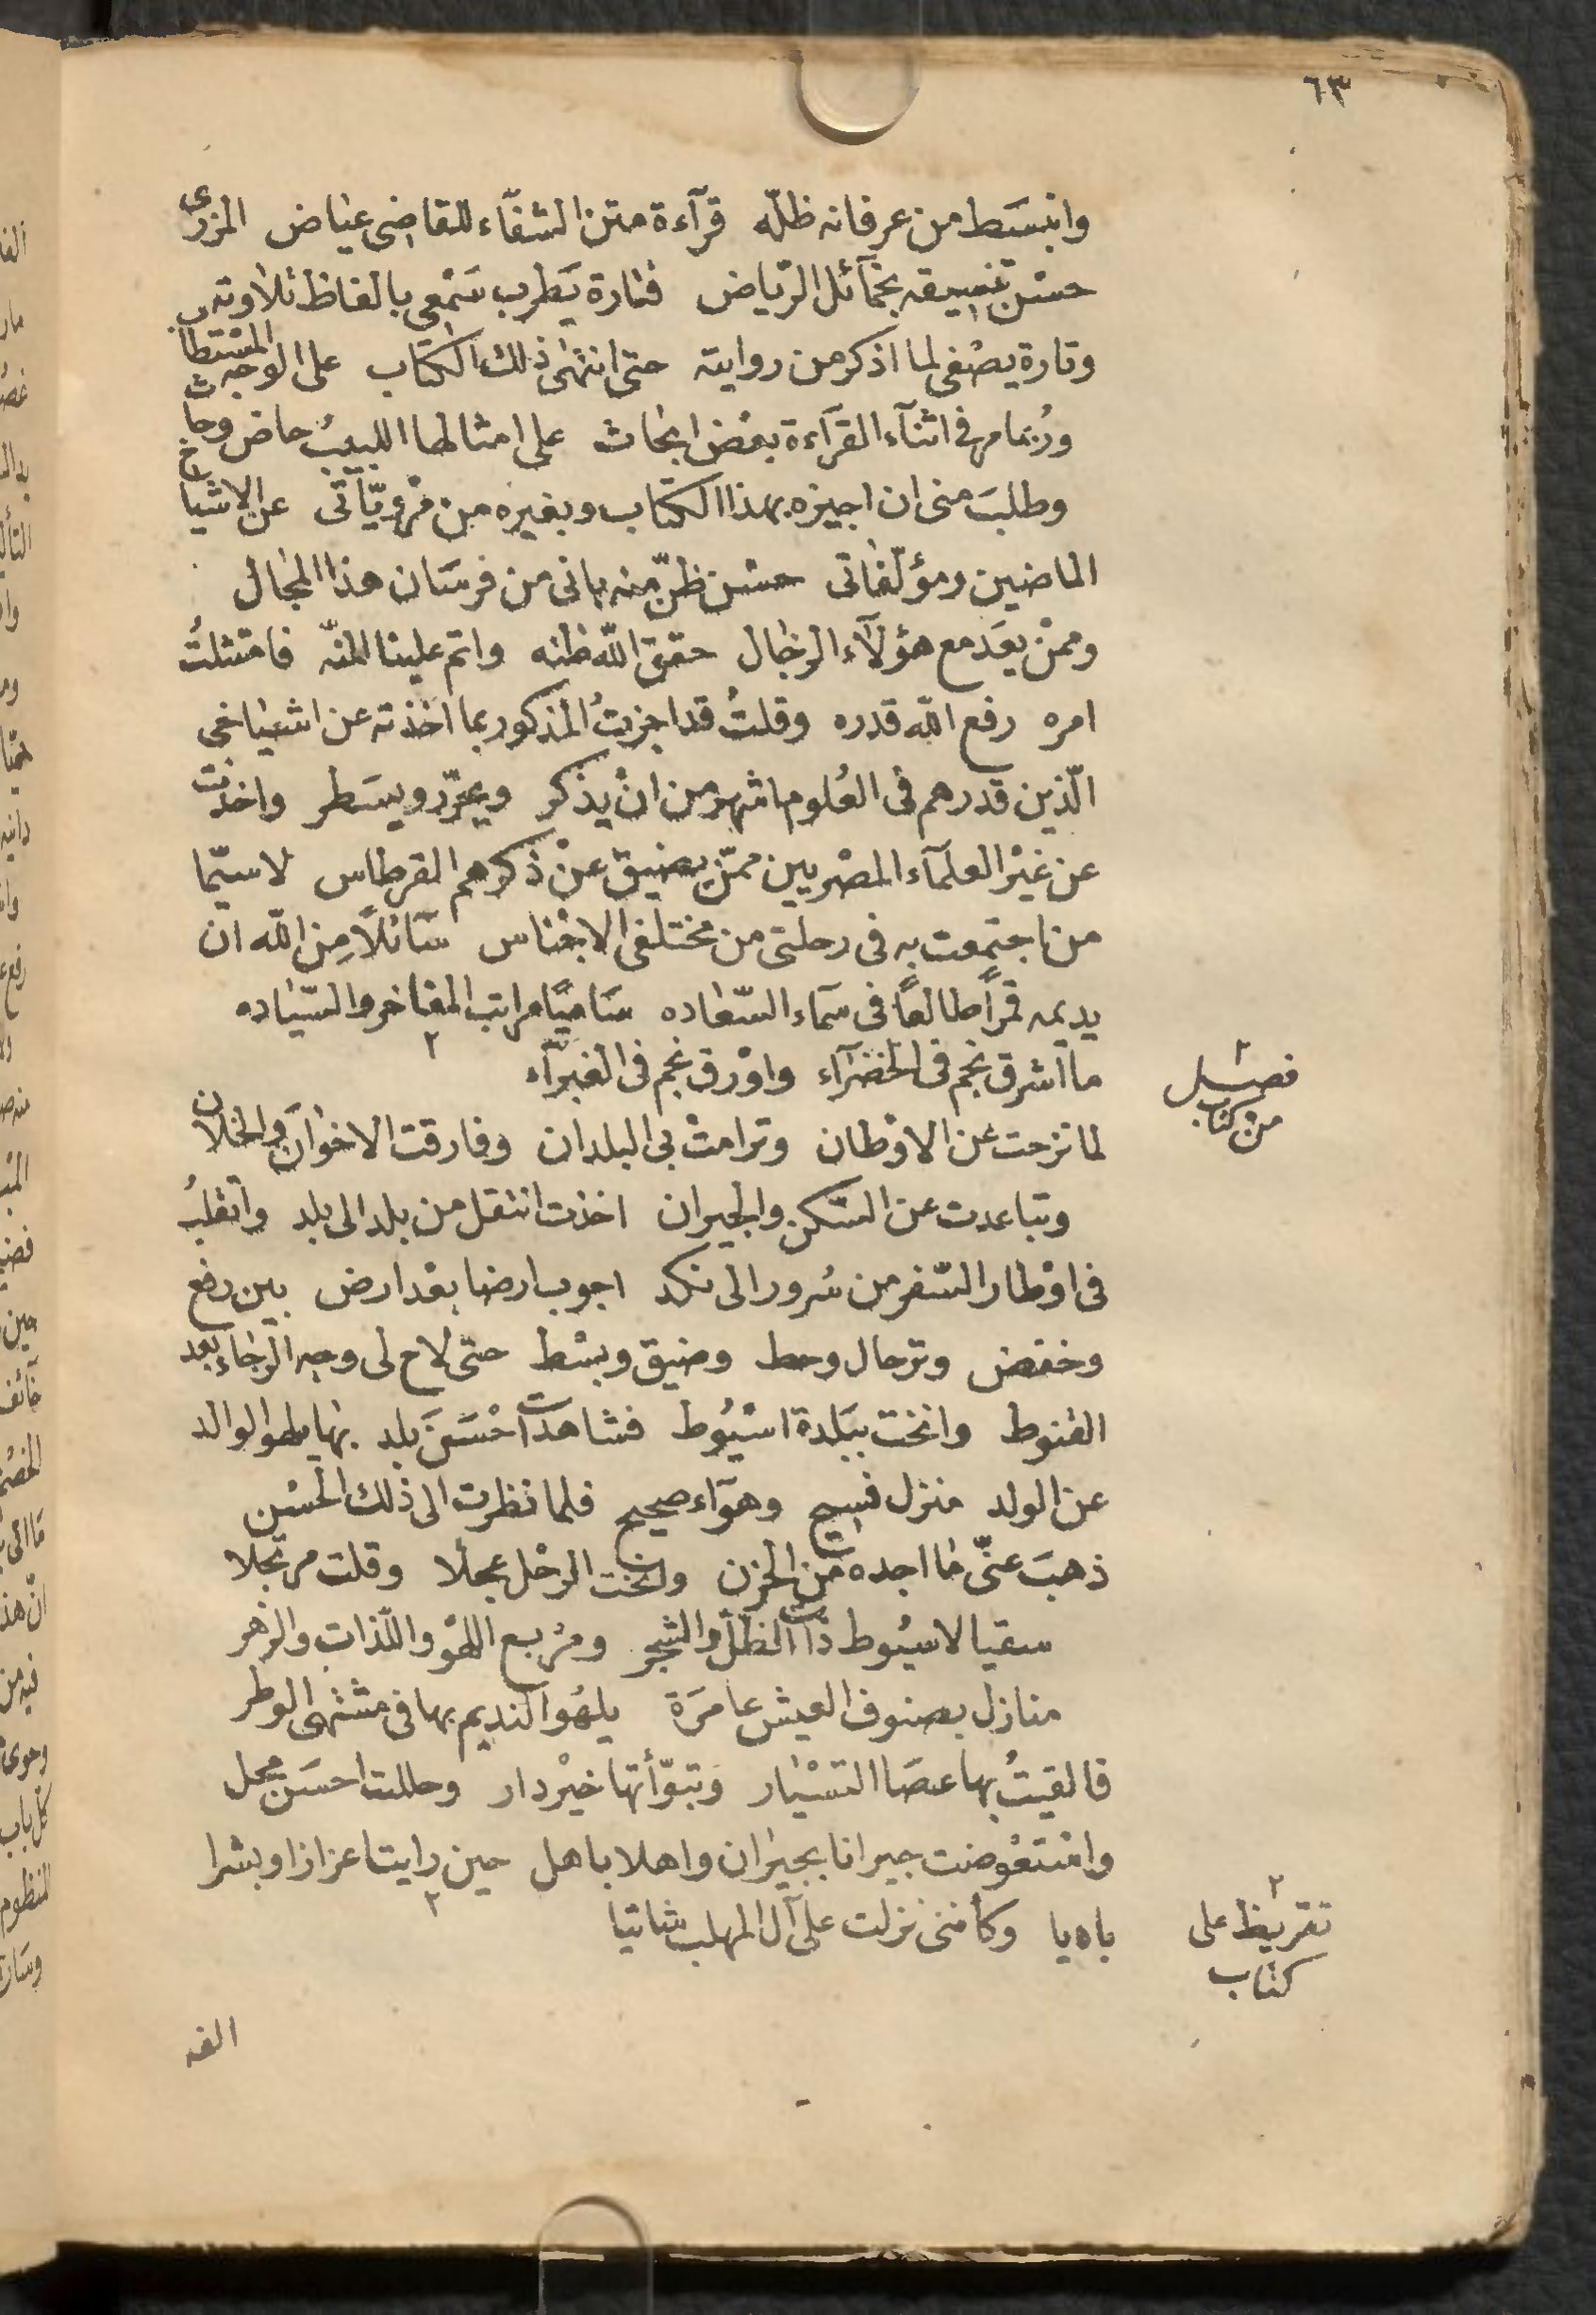 ٦٣
وانبسَط من عرفانه ظلّه قرآءة متن الشفآء للقاضى عياض المزرى
حسْن تنميقه بخمآئل الرّياض فتارة يَطرب سَمْعى بالفاظ تلاوته
وتارة يصْغى لما اذكر من روايته حتى انتهىٰ ذلك الكتاب على الوجه المسْتطاب
ورُبما مر فى اثنآء القرآءة بعض ابحاث على امثالها اللبيبُ حاض وحاث
وطلبَ منى ان اجيزه بهذا الكتاب وبغيره من مَرْويّآتى عن الاشياخ
الماضين ومؤلّفاتى حسْن ظنّ منه بانى من فرسَان هذا المجال
وممنْ يعَد مع هؤلآء الرجَال حقق الله ظنه واتم علينا المنّه فامتثلتُ
امره رفع الله قدره وقلتُ قد اجزتُ المذكور بما اخذته عن اشيَاخى
الّذين قدرهم فى العُلوم اشهر من انْ يذكر ويحرّر ويسَطر واخذت
عن غيْر العلمآء المصْريين ممّن يضيق عنْ ذكرهم القرطاس لاسيّما
من اجتمعت به فى رحلتى من مختلفى الاجْناس سَآئلاً مِن الله ان
يديمه قمراً طالعاً فى سمآء السّعاده سَاميًا مراتب المفاخر والسّياده
ما اشرق نجم فى الخضرآء واوْرق نجم فى الغبرآء ٢
فصْل
من كتاب
لما نزحت عن الاوْطان وترامتْ بى البلدان وفارقت الاخوان والخلان
وتباعدت عن السّكن والجيران اخذت انتقل من بلد الى بلد واتقلبُ
فى اوْطار السّفر من سُرور الى نكد اجوب ارضا بعْد ارض بين رفع
وخفض وترحال وحط وضيق وبسْط حتى لاح لى وجه الرّجاء بعد
القنوط وانخت ببَلدة اسْيُوط فشاهدت احْسَنَ بلد بها يلهو الوالد
عن الولد منزل فسيح وهوآء صحيح فلما نظرت الى ذلك الحسْن
ذهبَ عنّى ما اجده من الحزن وانخت الرحْل عجلا وقلت مرتجلا
سقيا لاسيُوط ذات الظلّ والشجر ومرْبع اللهْو واللّذات والزهر
منازل بصنوف العيش عامرَة يلهُو النديم بها فى مشتهى الوطر
فالقيتُ بها عصَا التسْيار وَتبوّأتها خيْر دار وحللت احسَن محل
واسْتعْوضت جيرانا بجيران واهلا باهل حين رايت اعزازا وبشرا
باديا وكأننى نزلت على آل المهلب شاتيا ٢
تقريظ على
كتاب
الفه